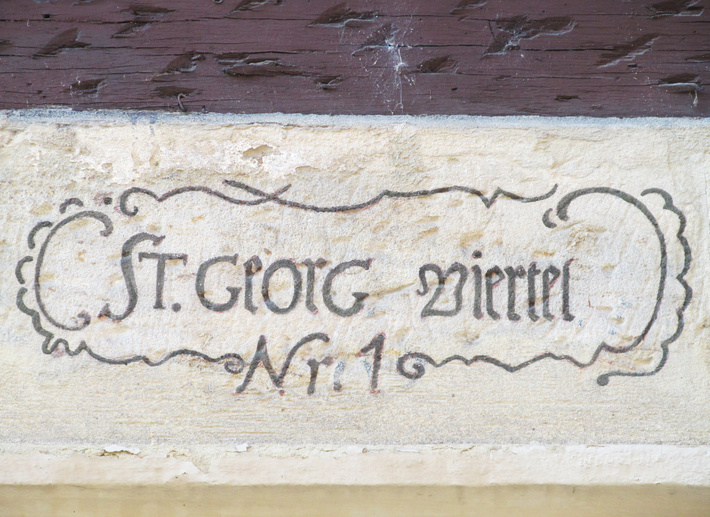 St. Georg Viertel
Nr. 1